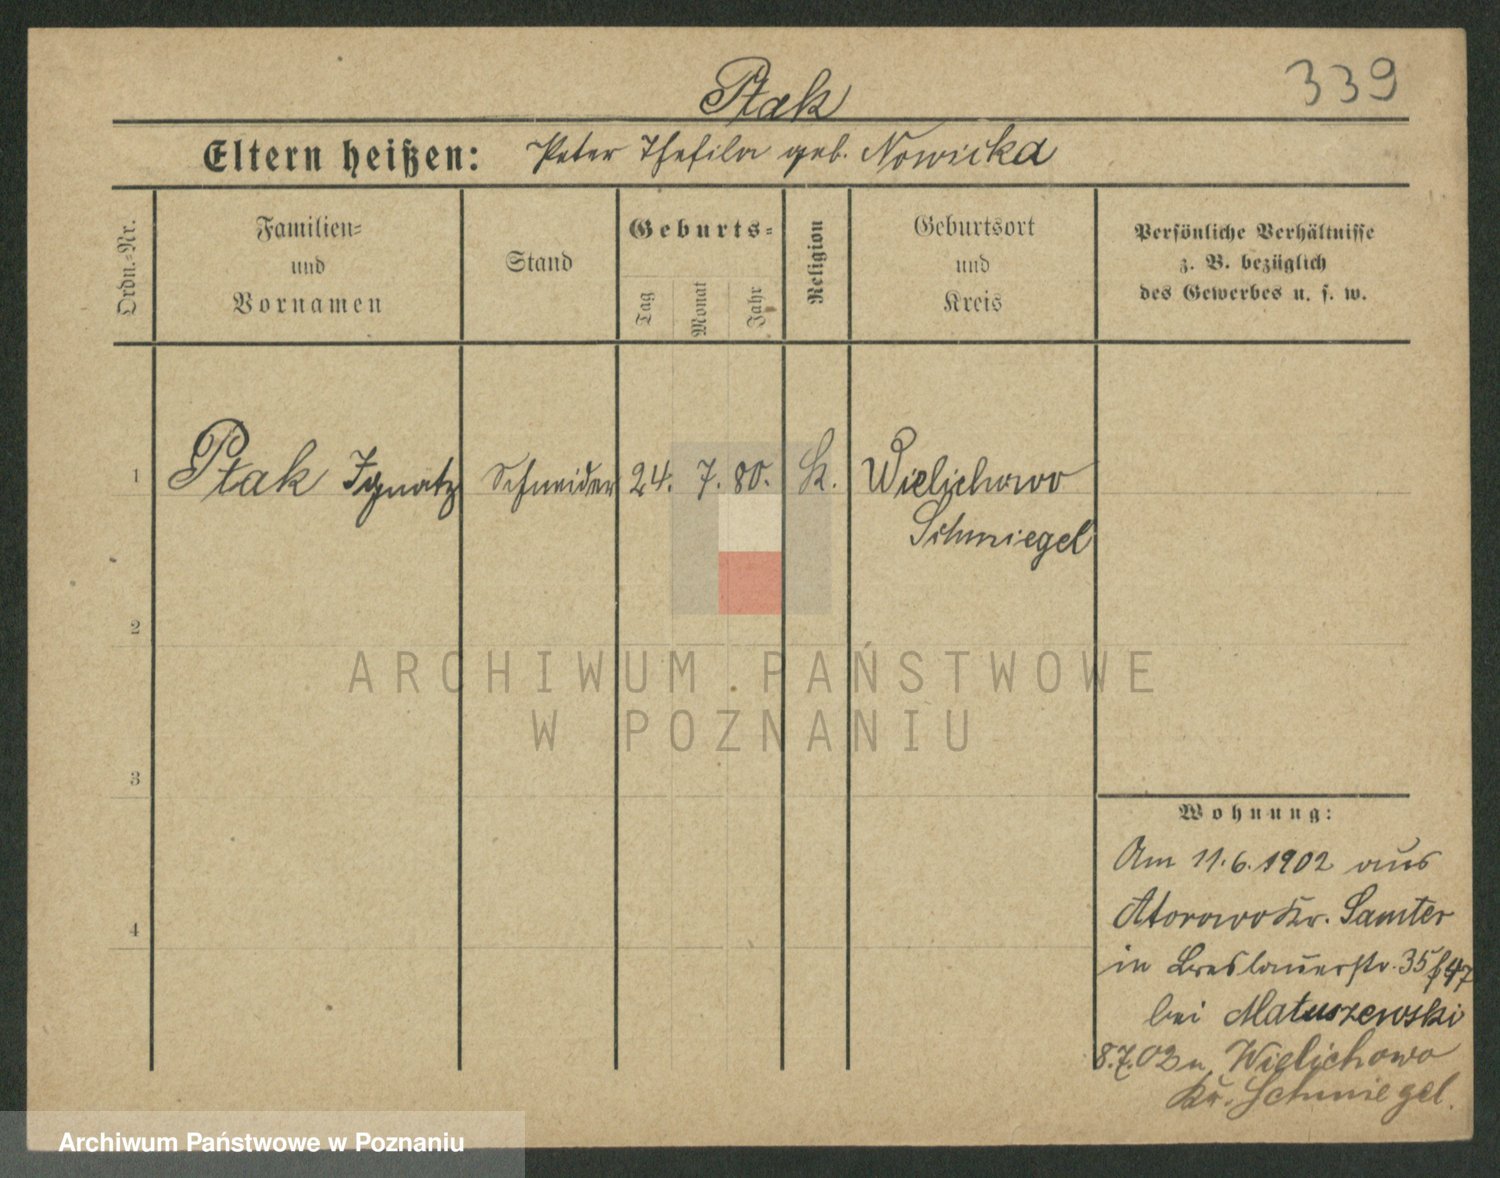 339
Ptak
Eltern heißen: Peter Thefila geb. Nowicka
Ordn.-Nr.
Familien-
und
Vornamen
Stand
Geburts-
Tag
Monat
Jahr
Religion
Geburtsort
und
Kreis
Persönliche Verhältnisse
z. B. bezüglich
des Gewerbes u. s. w.
1 Ptak Ignatz Schneider 24. 7. 80. k. Wielichowo
Schmiegel
2
3
4
ARCHIWUM PAŃSTWOWE
W POZNANIU
Wohnung:
Am 11.6.1902 aus
Otorowo Kr. Samter
in Breslauerstr. 35
bei Matuszewski
8.7.02 n. Wielichowo
Kr. Schmiegel.
Archiwum Państwowe w Poznaniu